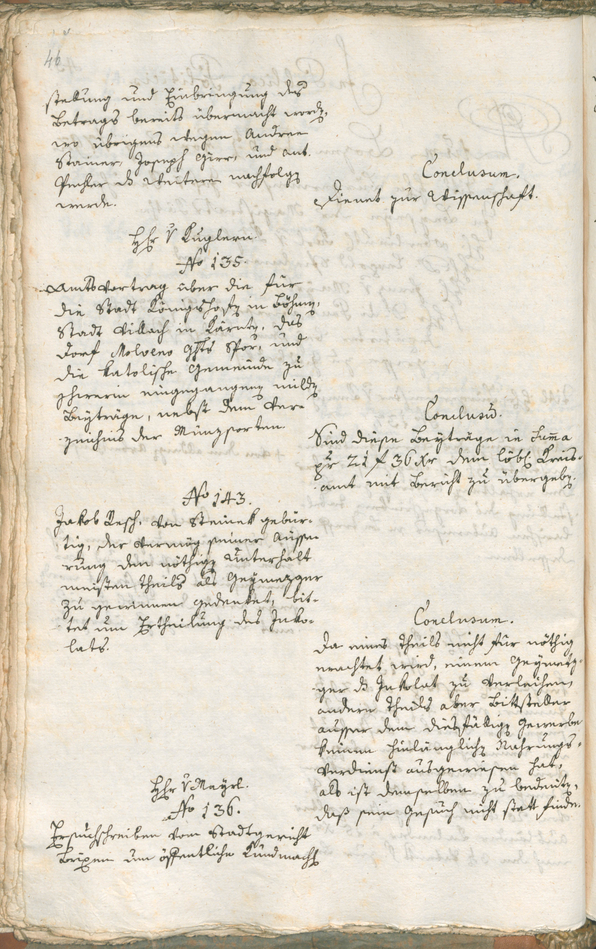 46
stellung und Einbringung des
Betrags bereits übermacht word,
wo übrigens wegen Andree
Stainer, Joseph Girr, und Ant.
Pecher ds weitere nachfolgen
werde.
Conclusum.
Dienet zur Wissenschaft.
Hhr v Kuglern.
No 135.
Amtsvortrag über die für
die Stadt Königshof in Böhmen,
Stadt Villach in Kärnten, das
Dorf Molveno Ghts Spor, und
die katolische Gemeinde zu
Schwerin eingegangene milde
Beyträge, nebst dem Ver-
zeichnis der Münzsorten
Conclusū.
Sind diese Beyträge in Summa
pr 21 f 36 Xr dem löbl. Kreis-
amt mit Bericht zu übergeben.
No 143.
Jakob Resch, von Steinek gebür-
tig, der vermög seiner Äusse-
rung den nöthigen Unterhalt
meisten theils als Geymezger
zu gewinnen gedenket, bit-
tet um Ertheilung des Inko-
lats.
Conclusum.
Da eines Theils nicht für nöthig
erachtet wird, einem Geymez-
ger ds Inkolat zu verleihen,
andern Theils aber Bittsteller
ausser dem diesfälligen Gewerbe
keinen hinlänglichen Nahrungs-
verdienst ausgewiesen hat,
als ist demselben zu bedeuten,
daß sein Gesuch nicht statt finde.
Hhr v Mayrl.
No 136.
Ersuchschreiben vom Stadtgericht
Brixen um öffentliche Kundmach